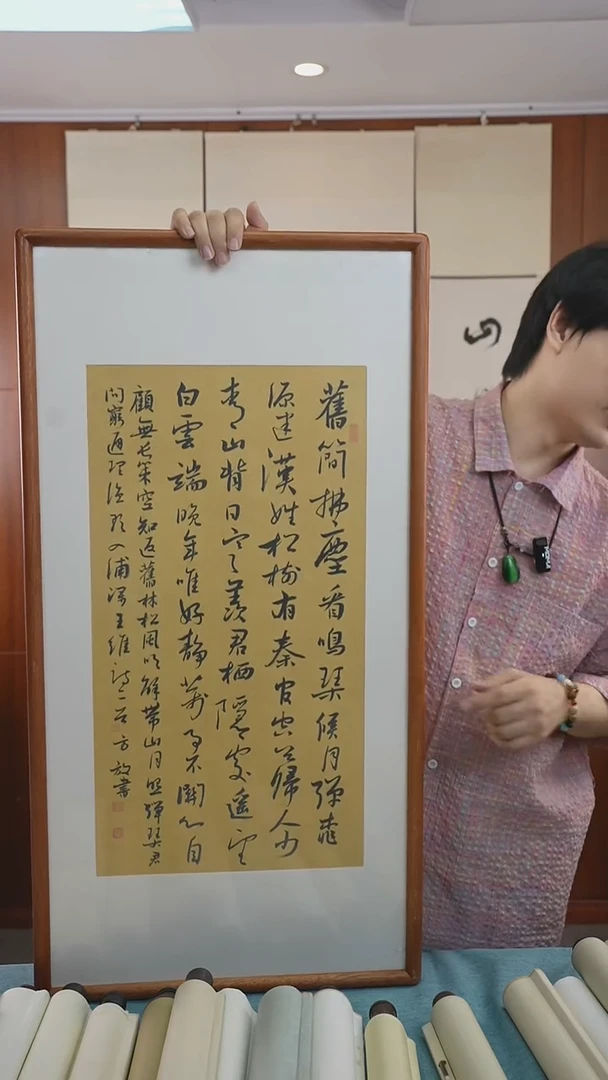 舊簡拂塵看鳴琴候月彈桃
源迷漢姓松樹有秦官空谷歸人少
青山背日寒羨君栖隱處遙望
白雲端晚年唯好靜萬事不關心自
顧無長策空知返舊林松風吹解帶山月照彈琴君
問窮通理漁歌入浦深王維詩二首 方放書